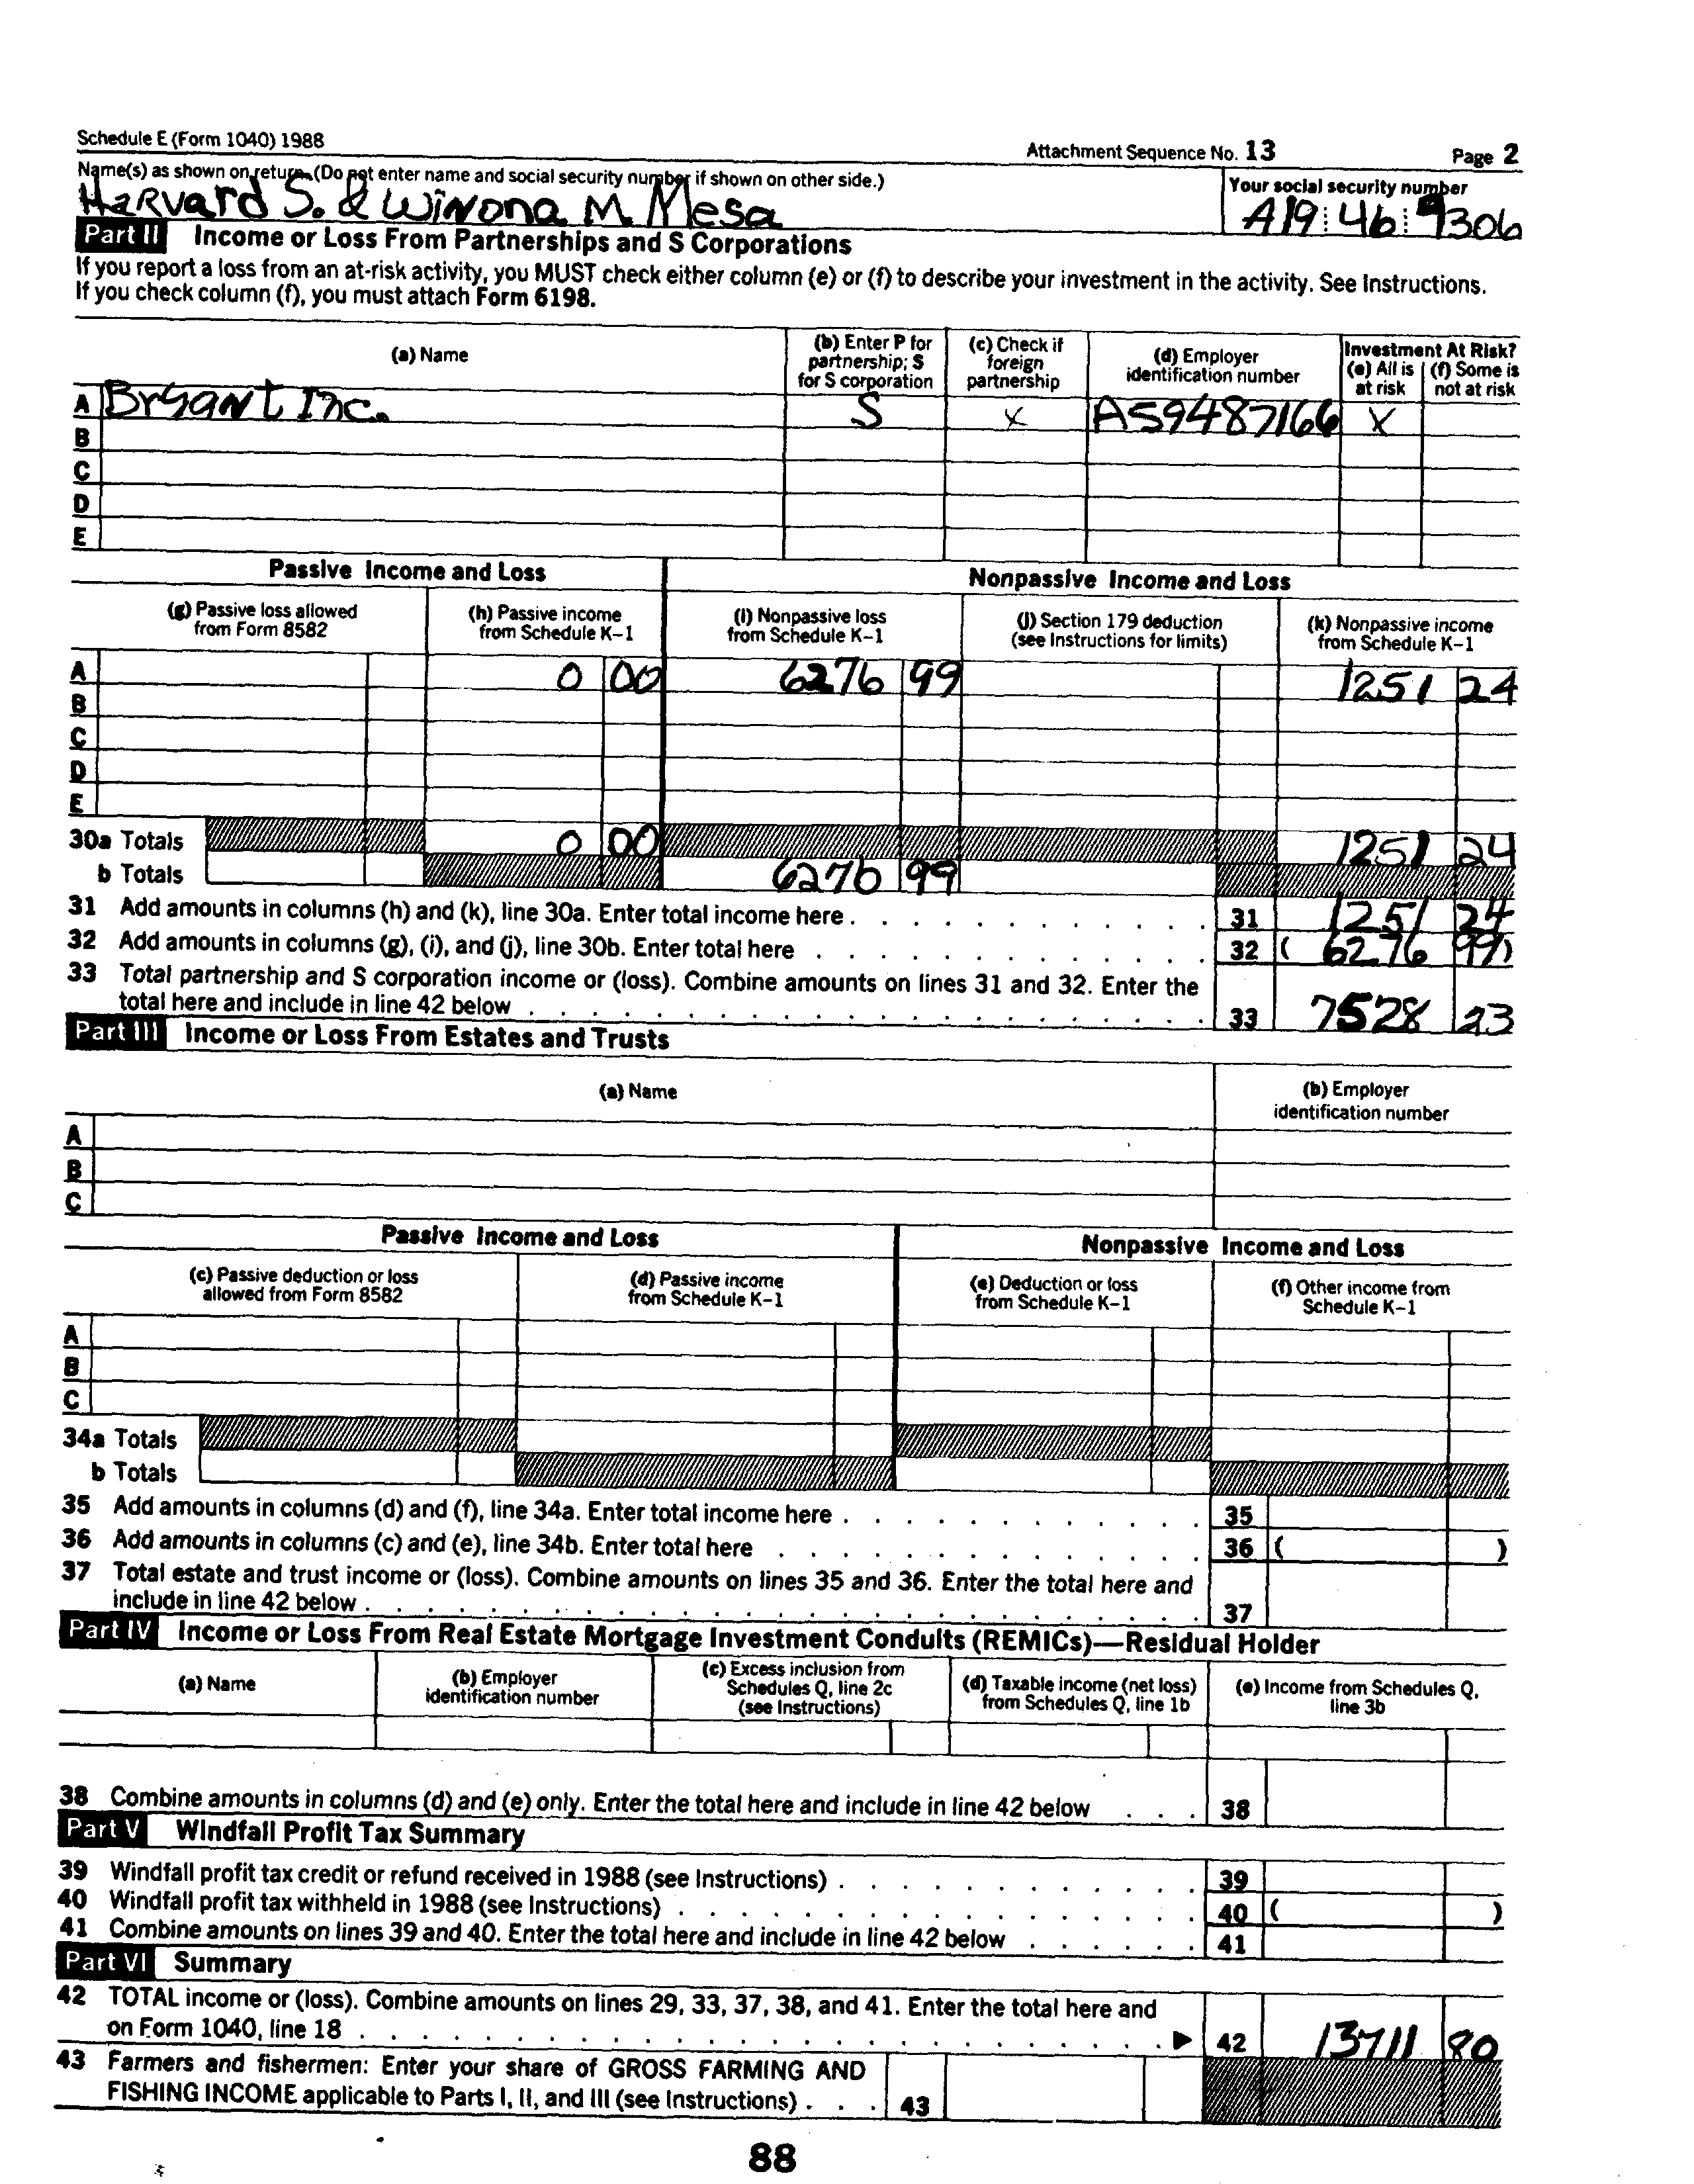 Schedule E (Form 1040) 1988 Attachment Sequence No. 13 Page 2
Name(s) as shown on return. (Do not enter name and social security number if shown on other side.) Your social security number
Harvard S. & Winona M. Mesa A19 46 9306
Part II Income or Loss From Partnerships and S Corporations
If you report a loss from an at-risk activity, you MUST check either column (e) or (f) to describe your investment in the activity. See Instructions.
If you check column (f), you must attach Form 6198.
(a) Name (b) Enter P for partnership; S for S corporation (c) Check if foreign partnership (d) Employer identification number Investment At Risk? (e) All is at risk (f) Some is not at risk
A Bryant Inc. S X A59487166 X
B
C
D
E
Passive Income and Loss Nonpassive Income and Loss
(g) Passive loss allowed from Form 8582 (h) Passive income from Schedule K-1 (i) Nonpassive loss from Schedule K-1 (j) Section 179 deduction (see Instructions for limits) (k) Nonpassive income from Schedule K-1
A 0 00 6276 99 1251 24
B
C
D
E
30a Totals 0 00 1251 24
b Totals 6276 99
31 Add amounts in columns (h) and (k), line 30a. Enter total income here 31 1251 24
32 Add amounts in columns (g), (i), and (j), line 30b. Enter total here 32 ( 6276 99)
33 Total partnership and S corporation income or (loss). Combine amounts on lines 31 and 32. Enter the
total here and include in line 42 below 33 7528 23
Part III Income or Loss From Estates and Trusts
(a) Name (b) Employer identification number
A
B
C
Passive Income and Loss Nonpassive Income and Loss
(c) Passive deduction or loss allowed from Form 8582 (d) Passive income from Schedule K-1 (e) Deduction or loss from Schedule K-1 (f) Other income from Schedule K-1
A
B
C
34a Totals
b Totals
35 Add amounts in columns (d) and (f), line 34a. Enter total income here 35
36 Add amounts in columns (c) and (e), line 34b. Enter total here 36 ( )
37 Total estate and trust income or (loss). Combine amounts on lines 35 and 36. Enter the total here and
include in line 42 below 37
Part IV Income or Loss From Real Estate Mortgage Investment Conduits (REMICs)—Residual Holder
(a) Name (b) Employer identification number (c) Excess inclusion from Schedules Q, line 2c (see Instructions) (d) Taxable income (net loss) from Schedules Q, line 1b (e) Income from Schedules Q, line 3b
38 Combine amounts in columns (d) and (e) only. Enter the total here and include in line 42 below 38
Part V Windfall Profit Tax Summary
39 Windfall profit tax credit or refund received in 1988 (see Instructions) 39
40 Windfall profit tax withheld in 1988 (see Instructions) 40 ( )
41 Combine amounts on lines 39 and 40. Enter the total here and include in line 42 below 41
Part VI Summary
42 TOTAL income or (loss). Combine amounts on lines 29, 33, 37, 38, and 41. Enter the total here and
on Form 1040, line 18 ▶ 42 13711 80
43 Farmers and fishermen: Enter your share of GROSS FARMING AND
FISHING INCOME applicable to Parts I, II, and III (see Instructions) 43
88